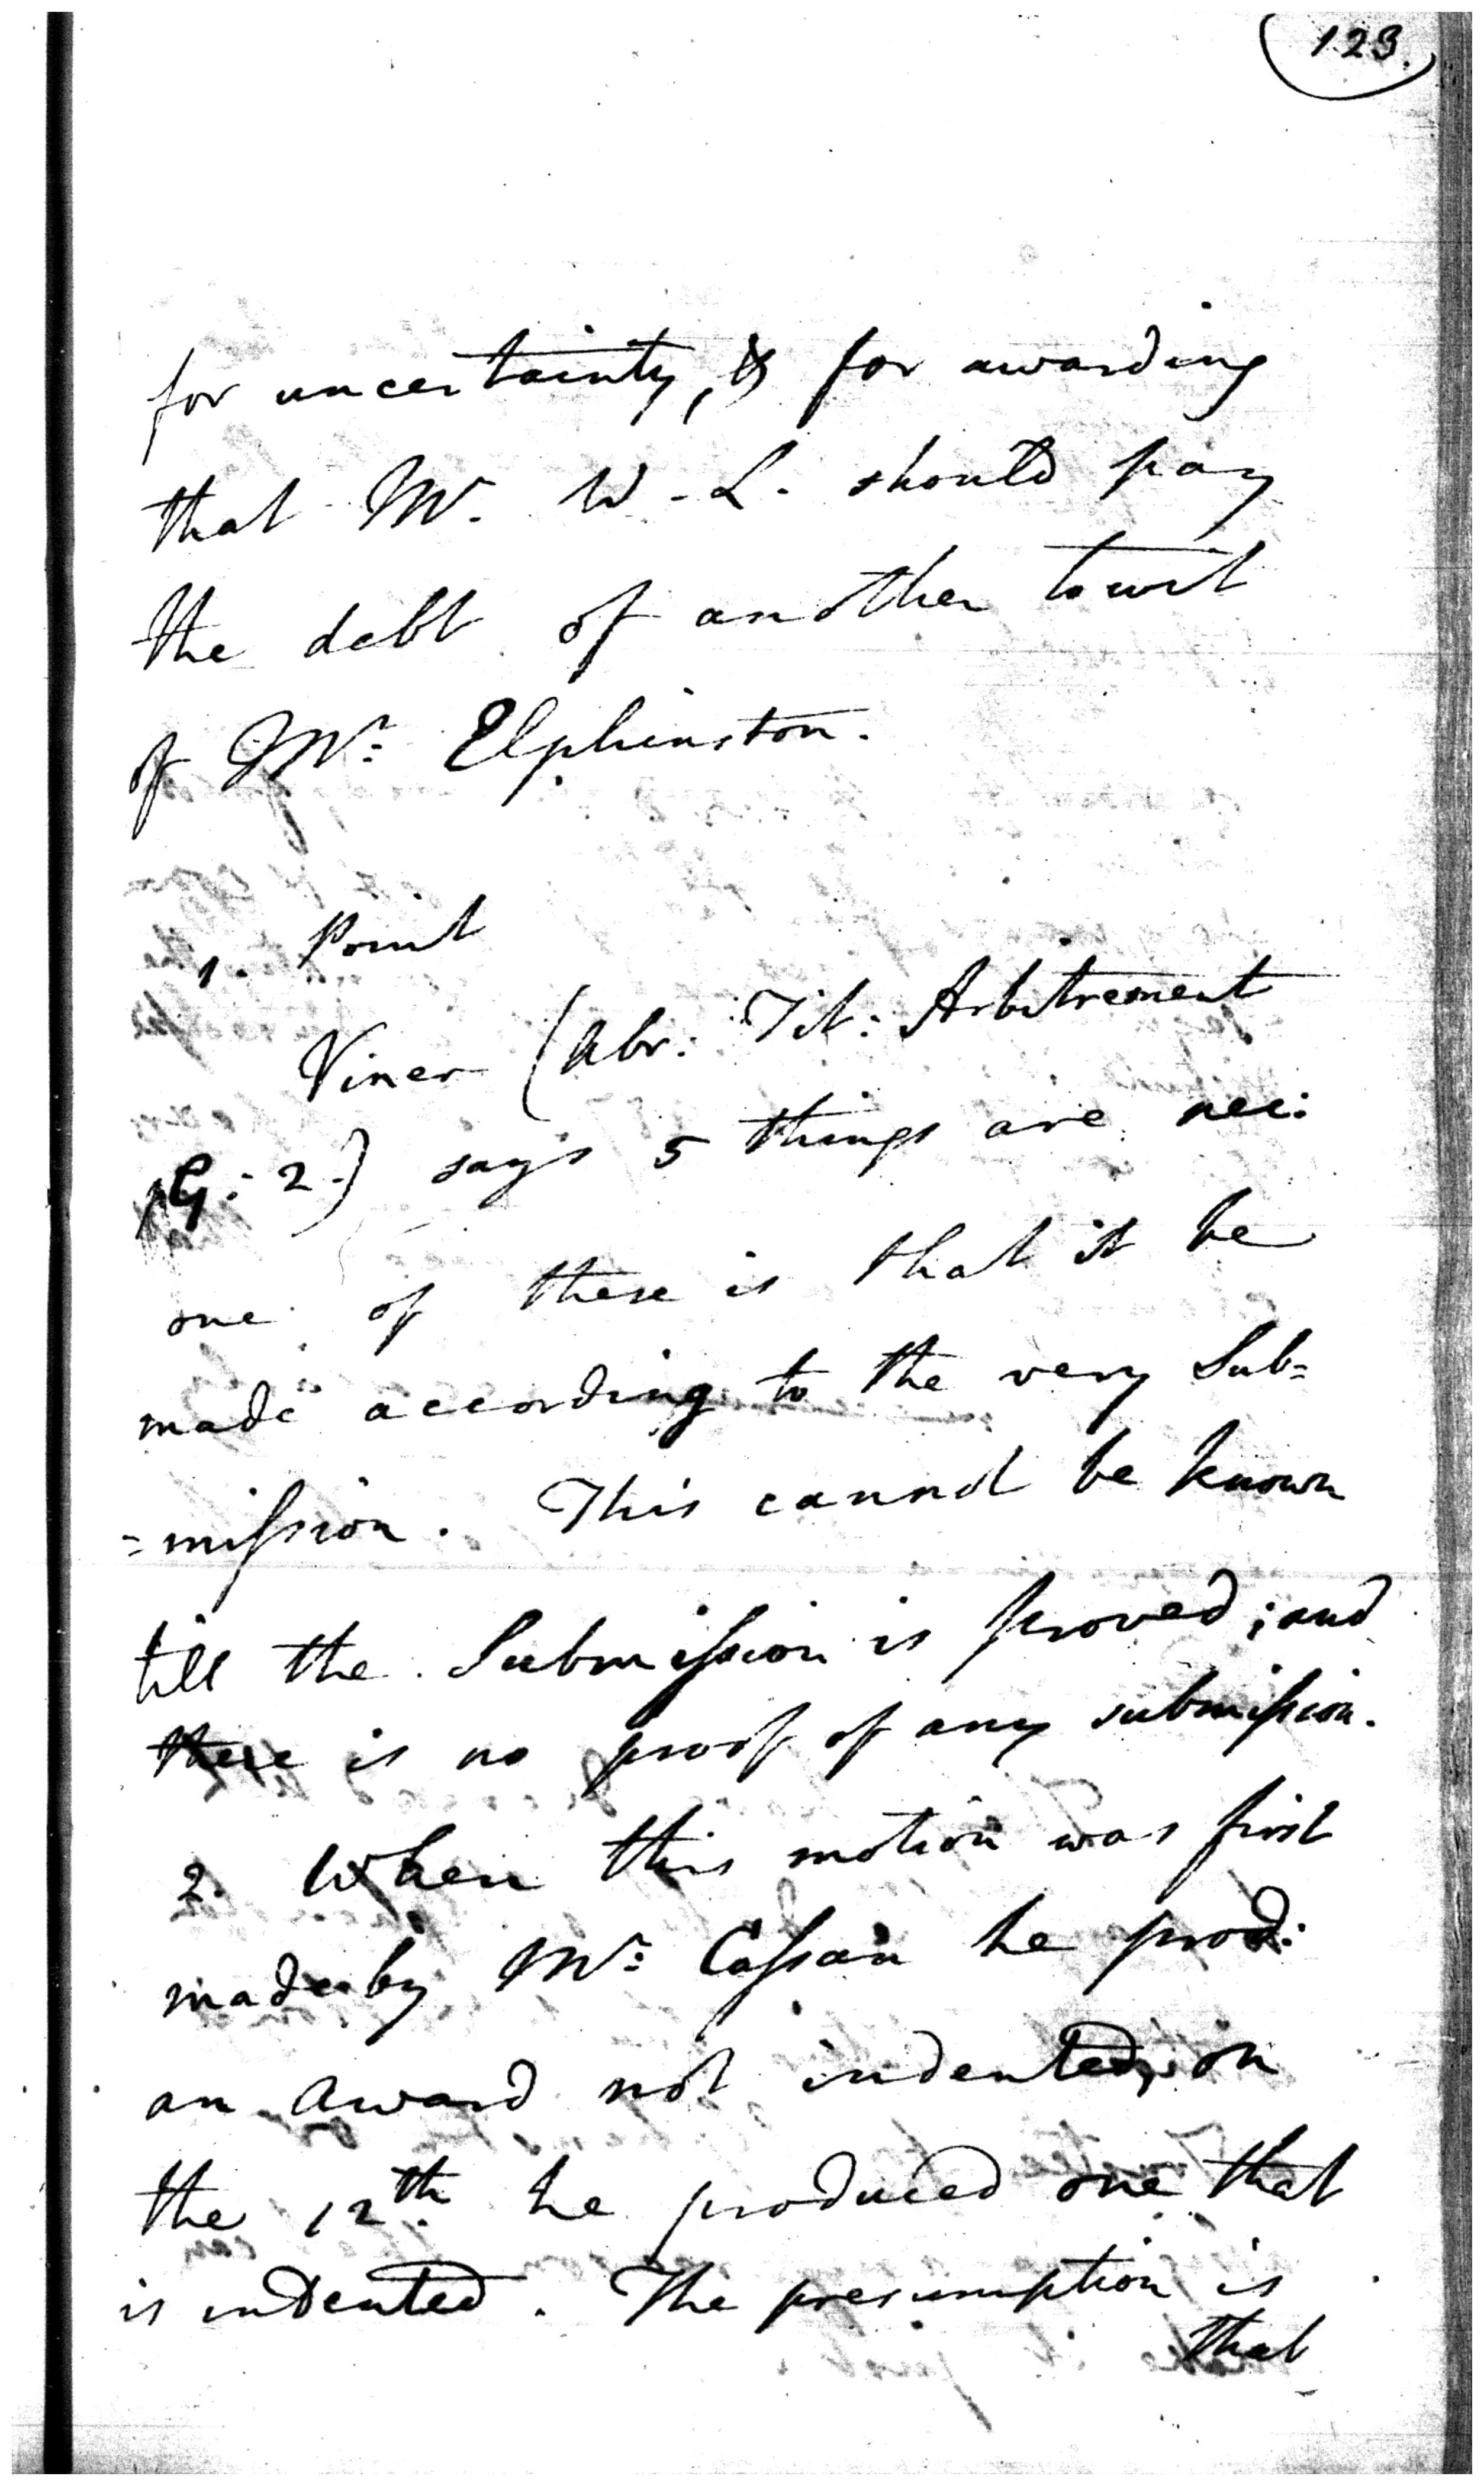 123.
for uncertainty, & for awarding
that Mr. W. L. should pay
the debt of another towit
of Mr: Elphinston.
1. Point
Viner (Abr: Tit: Arbitrement
G: 2.) says 5 things are nec:
one of these is that it be
made according to the very Sub=
=mission. This cannot be known
till the Submission is proved; and
there is no proof of any submission.
2. When this motion was first
made by Mr: Cassan he prod:
an award not indented, on
the 12th. he produced one that
is indented. The presumption is
that